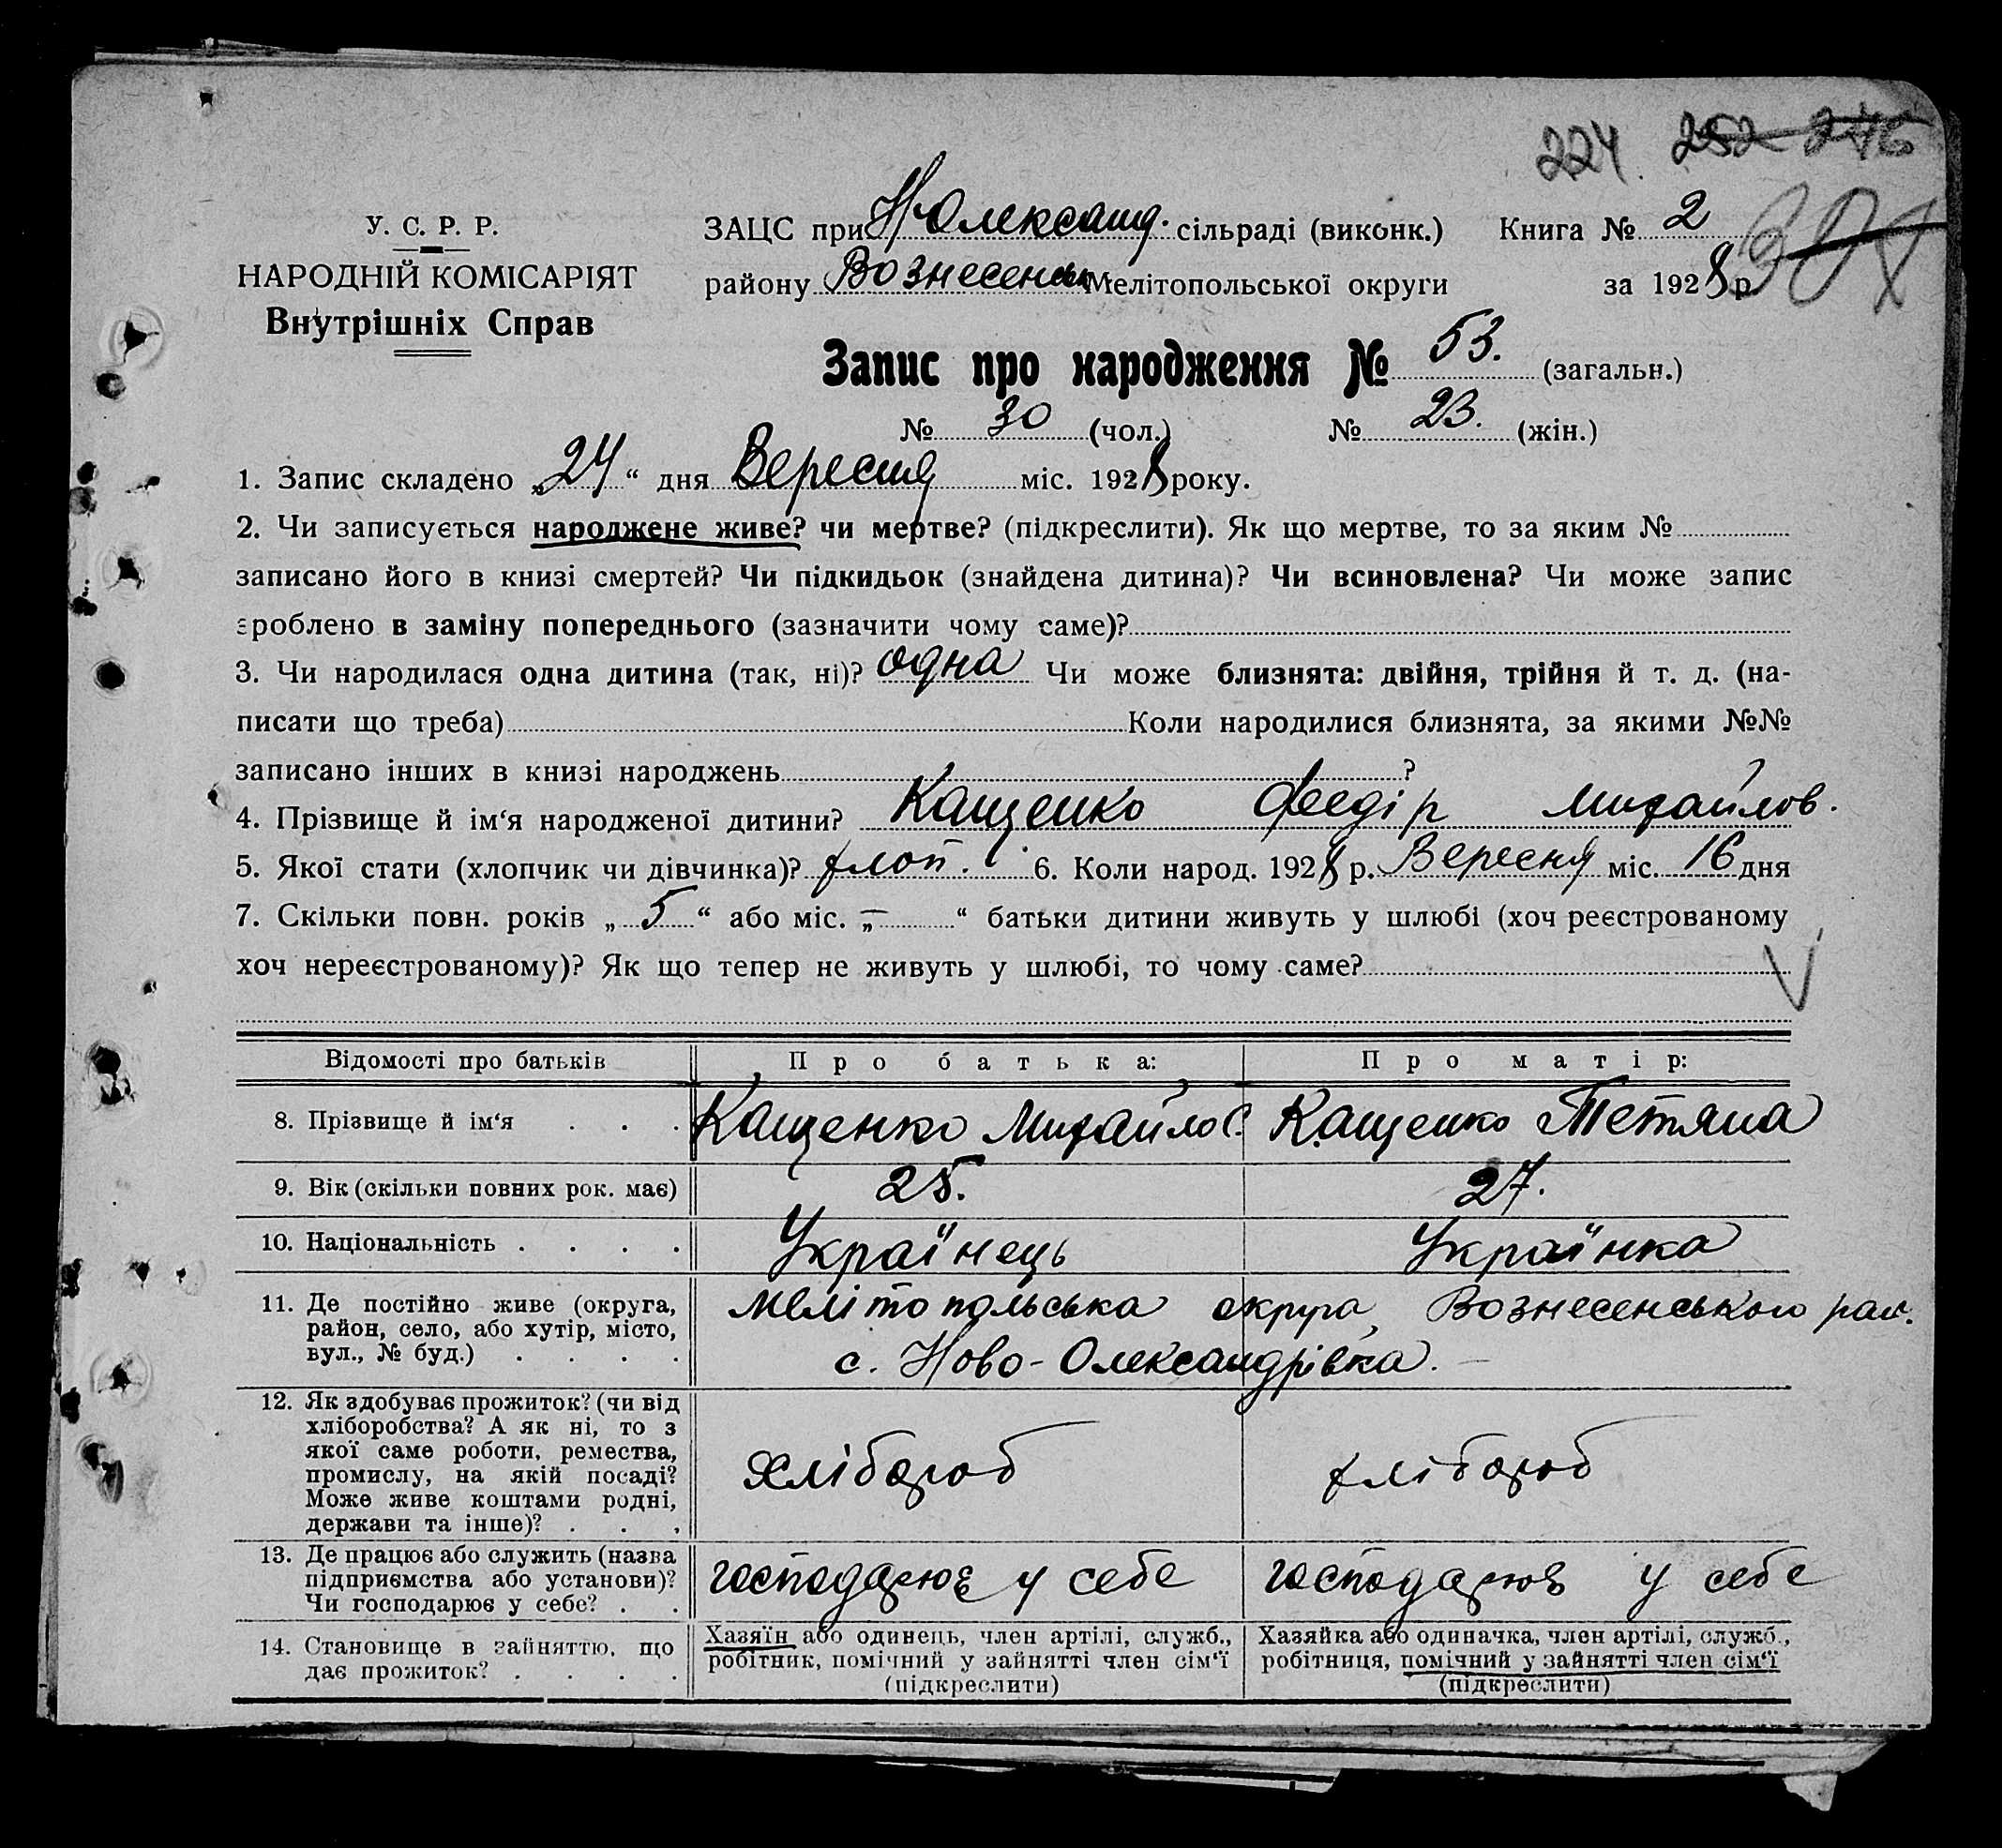 224. 252 246
У. С. Р. Р.
НАРОДНІЙ КОМІСАРІЯТ
Внутрішніх Справ
ЗАЦС при Н Олександ. сільраді (виконк.) Книга № 2
району Вознесенськ Мелітопольської округи за 1928 р.
Запис про народження № 53. (загальн.)
№ 30 (чол.) № 23. (жін.)
1. Запис складено „24“ дня Вересня міс. 1928 року.
2. Чи записується народжене живе? чи мертве? (підкреслити). Як що мертве, то за яким №
записано його в книзі смертей? Чи підкидьок (знайдена дитина)? Чи всиновлена? Чи може запис
зроблено в заміну попереднього (зазначити чому саме)?
3. Чи народилася одна дитина (так, ні)? одна Чи може близнята: двійня, трійня й т. д. (на-
писати що треба) Коли народилися близнята, за якими №№
записано інших в книзі народжень ?
4. Прізвище й ім‘я народженої дитини? Кащенко Федір Михайлов.
5. Якої стати (хлопчик чи дівчинка)? хлоп. 6. Коли народ. 1928 р. Вересня міс. 16 дня
7. Скільки повн. років „5“ або міс. „—“ батьки дитини живуть у шлюбі (хоч реєстрованому
хоч нереєстрованому)? Як що тепер не живуть у шлюбі, то чому саме?
Відомості про батьків Про батька: Про матір:
8. Прізвище й ім‘я . . . Кащенко Михайло С. Кащенко Тетяна
9. Вік (скільки повних рок. має) 25. 27.
10. Національність . . . . Українець Українка
11. Де постійно живе (округа,
район, село, або хутір, місто,
вул., № буд.) . . . .
Мелітопольська округа, Вознесенського рай.
с. Ново-Олександрівка.
12. Як здобуває прожиток? (чи від
хліборобства? А як ні, то з
якої саме роботи, ремества,
промислу, на якій посаді?
Може живе коштами родні,
держави та інше)? . . .
хлібороб хлібороб
13. Де працює або служить (назва
підприємства або установи)?
Чи господарює у себе? . .
господарює у себе господарює у себе
14. Становище в зайняттю, що
дає прожиток? . . . .
Хазяїн або одинець, член артілі, служб.,
робітник, помічний у зайнятті член сім‘ї
(підкреслити)
Хазяйка або одиначка, член артілі, служб.,
робітниця, помічний у зайнятті член сім‘ї
(підкреслити)